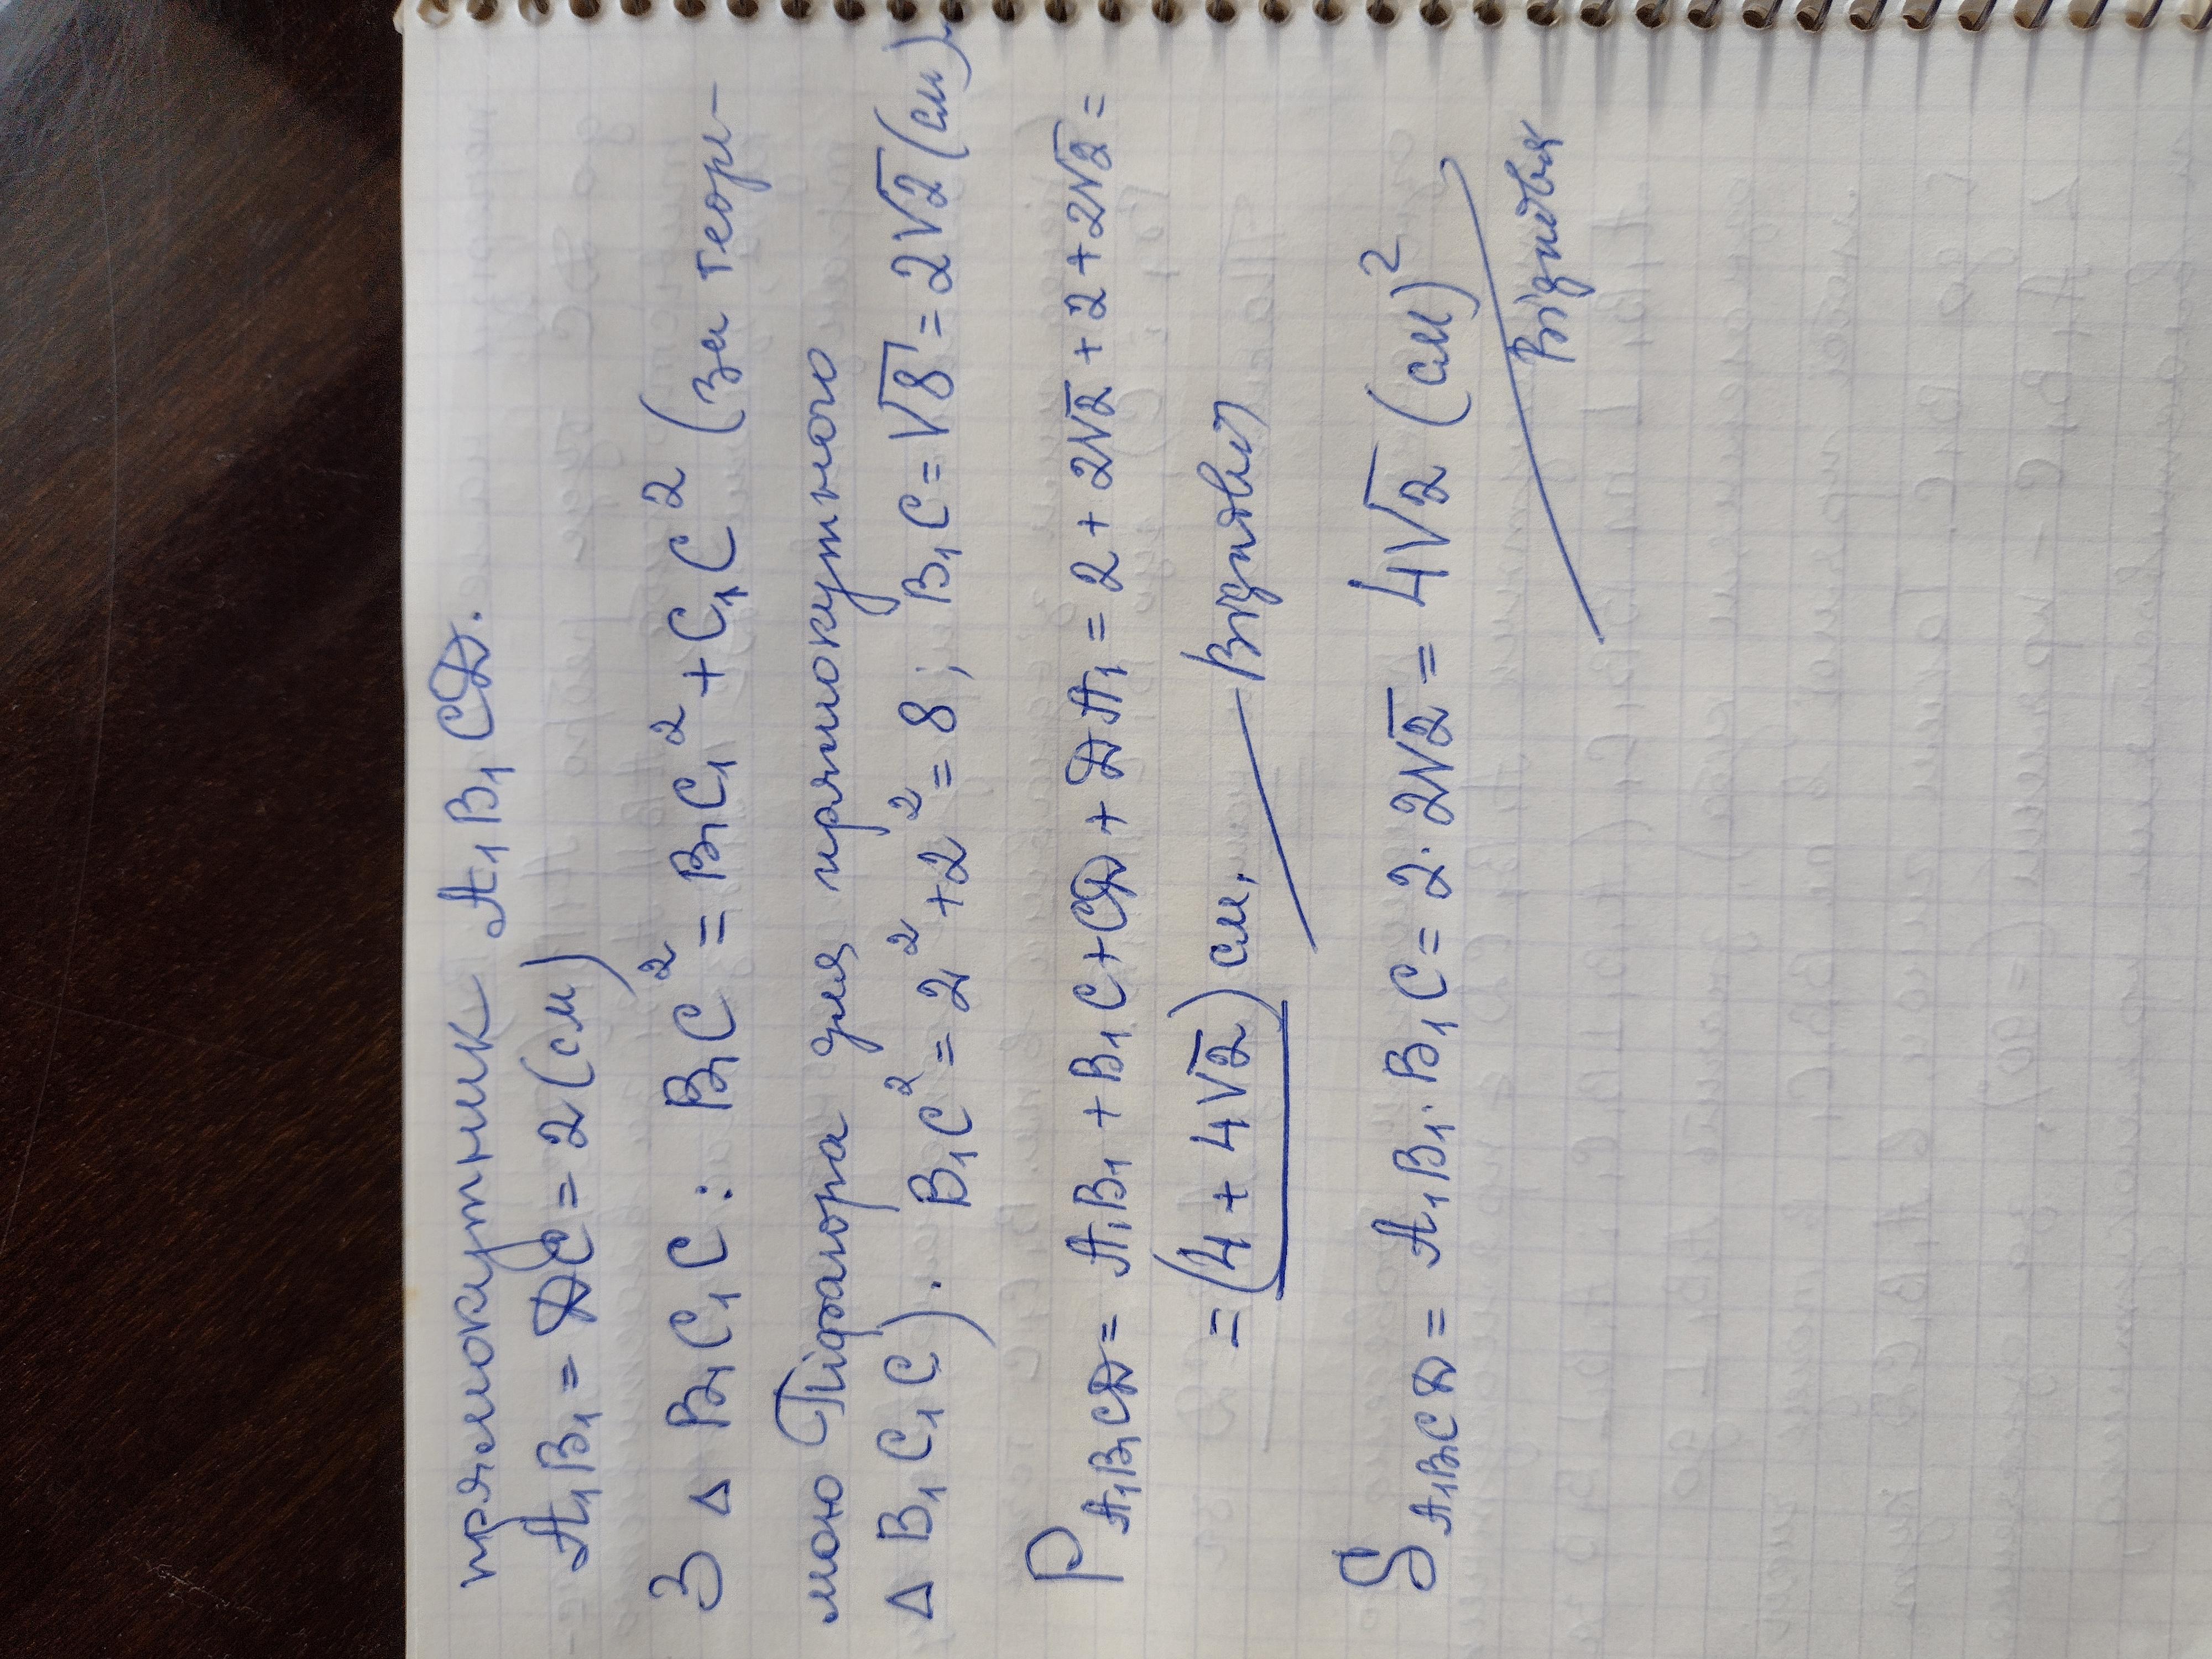 прямокутник A₁B₁CD.
A₁B₁ = DC = 2 (см)
З △ B₁C₁C: B₁C² = B₁C₁² + C₁C² (за теоре-
мою Піфагора для прямокутного
△ B₁C₁C). B₁C² = 2² + 2² = 8; B₁C = √8 = 2√2 (см).
P A₁B₁CD = A₁B₁ + B₁C + CD + DA₁ = 2 + 2√2 + 2 + 2√2 =
= (4 + 4√2) см. Відповідь
S A₁B₁CD = A₁B₁ · B₁C = 2 · 2√2 = 4√2 (см)²
Відповідь